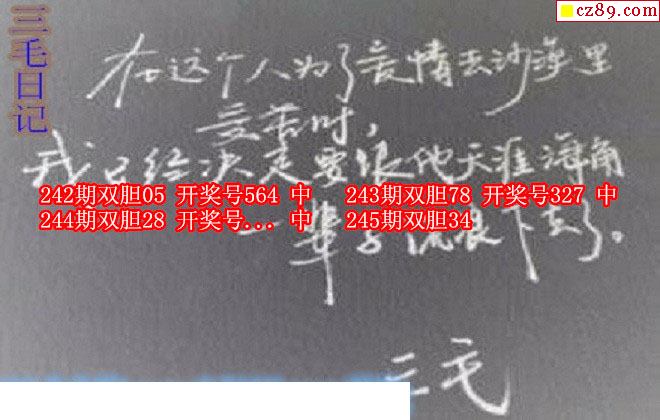 cz89.com
三毛日记
在这个人为了爱情去沙漠里
受苦时，
我已经决定要跟他天涯海角
242期双胆05 开奖号564 中 243期双胆78 开奖号327 中
244期双胆28 开奖号... 中 245期双胆34
一辈子流浪下去了。
三毛